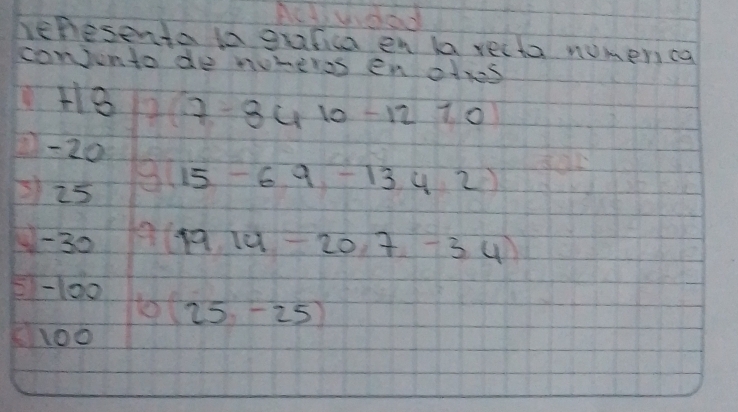 Actividad
representa la grafica en la recta numerica
conjunto de numeros en otros
1) +18 7(7 -8 4 10 -12 10)
2) -20
8(15 -6, 9, -13, 4, 2)
3) 25
4) -30 9(19, 14, -20, 7, -3 4)
5) -100
10(25, -25)
6) 100